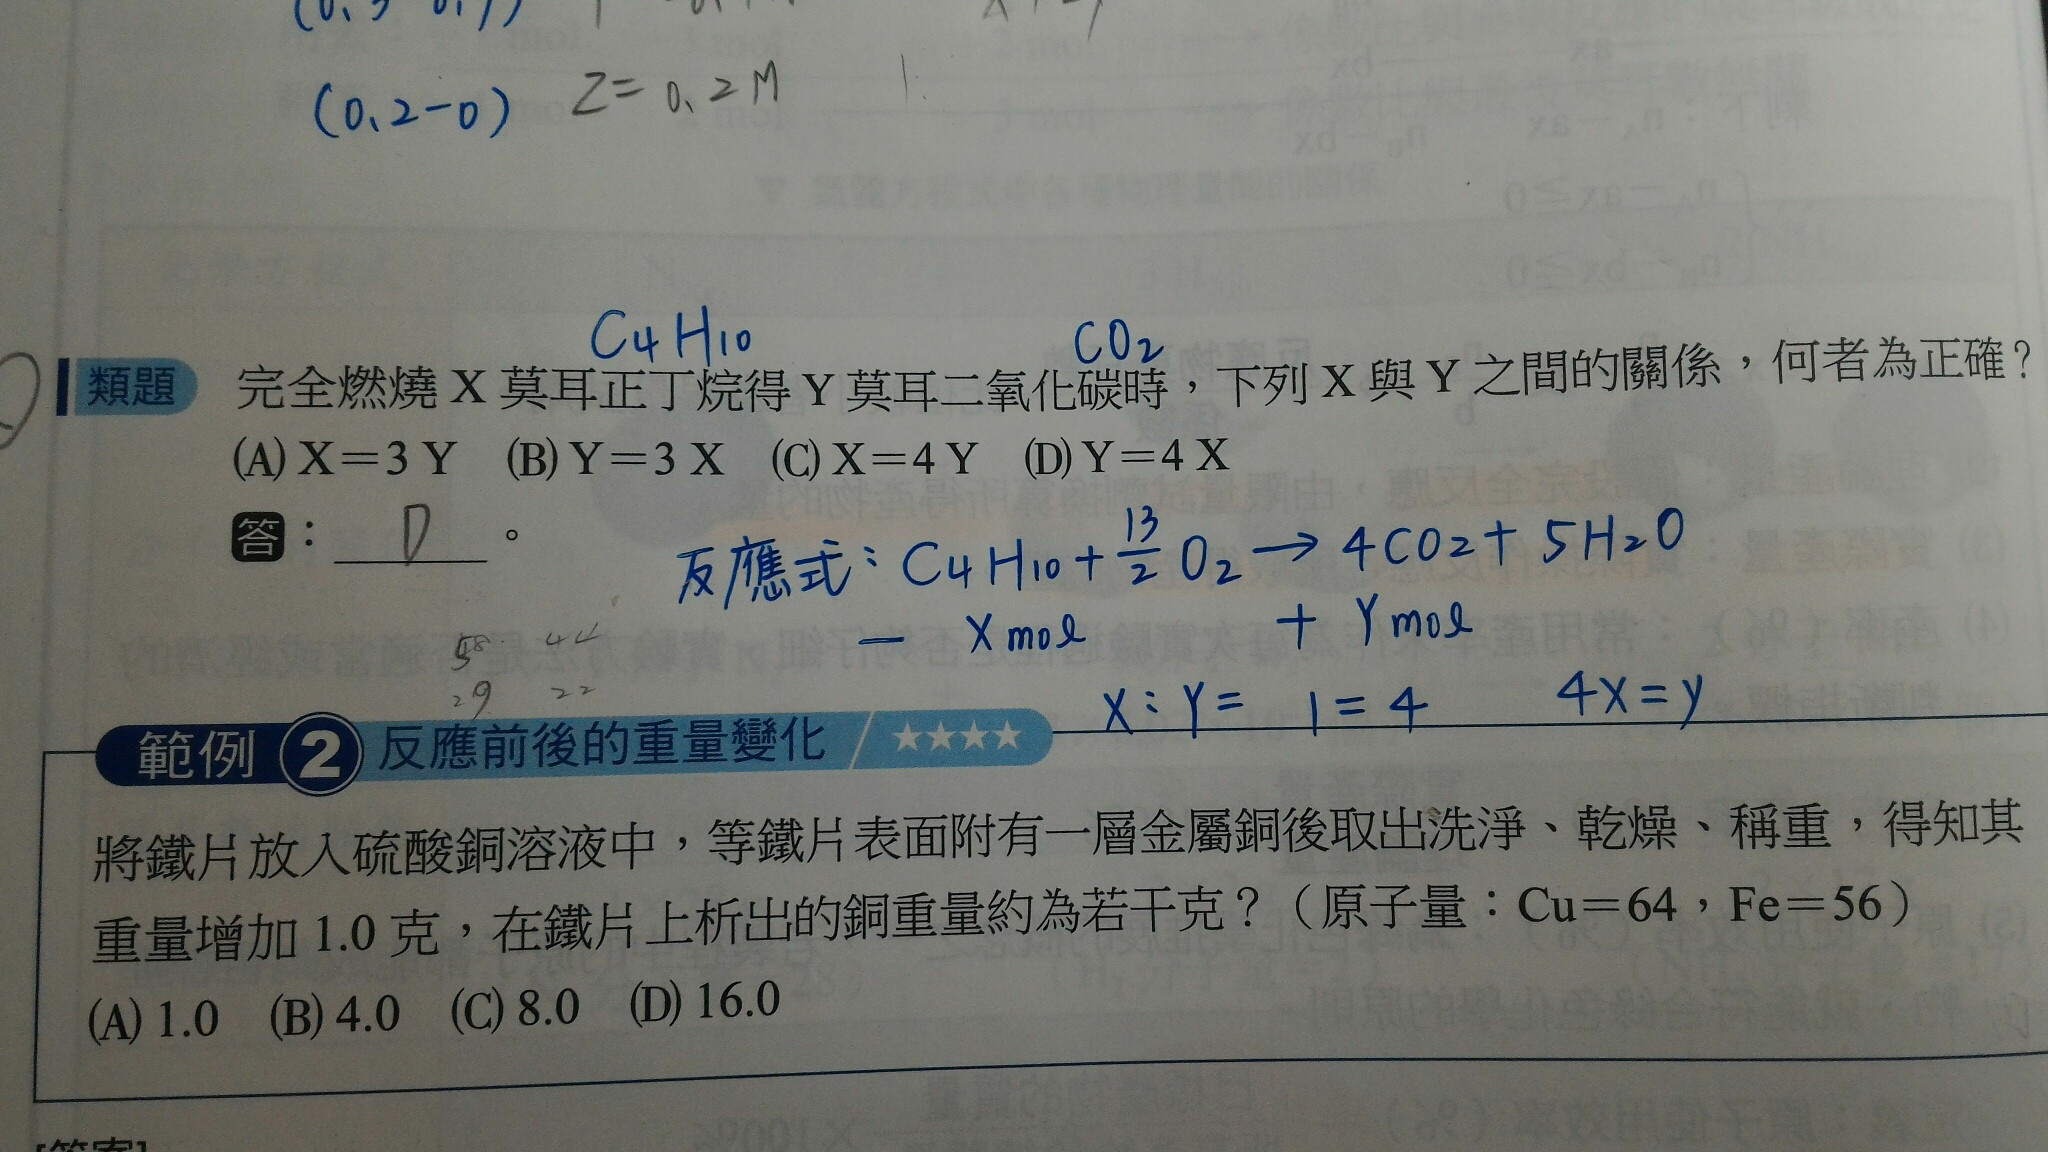 (0.2-0) Z=0.2M
C4H10 CO2
類題 完全燃燒 X 莫耳正丁烷得 Y 莫耳二氧化碳時，下列 X 與 Y 之間的關係，何者為正確？
(A) X＝3 Y (B) Y＝3 X (C) X＝4 Y (D) Y＝4 X
答：D。
反應式：C4H10 + 13/2 O2 → 4CO2 + 5H2O
－ Xmol ＋ Ymol
58 44
29 22
X：Y= 1=4 4X=y
範例 2 反應前後的重量變化 / ★★★★
將鐵片放入硫酸銅溶液中，等鐵片表面附有一層金屬銅後取出洗淨、乾燥、稱重，得知其
重量增加 1.0 克，在鐵片上析出的銅重量約為若干克？（原子量：Cu＝64，Fe＝56）
(A) 1.0 (B) 4.0 (C) 8.0 (D) 16.0